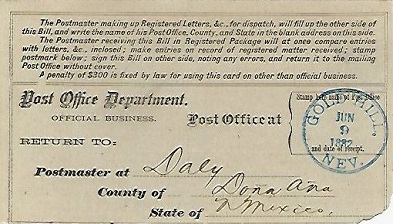 The Postmaster making up Registered Letters, &c., for dispatch, will fill up the other side of
this Bill, and write the name of his Post Office, County, and State in the blank address on this side.
The Postmaster receiving this Bill in Registered Package will at once compare entries
with letters, &c., inclosed; make entries on record of registered matter received; stamp
postmark below; sign this Bill on other side, noting any errors, and return it to the mailing
Post Office without cover.
A penalty of $300 is fixed by law for using this card on other than official business.
Post Office Department.
OFFICIAL BUSINESS.
Post Office at
Stamp here name of Post Office
and date of receipt.
GOLD HILL,
JUN
9
1882
NEV.
RETURN TO:
Postmaster at Daly
County of Dona Ana
State of N Mexico.